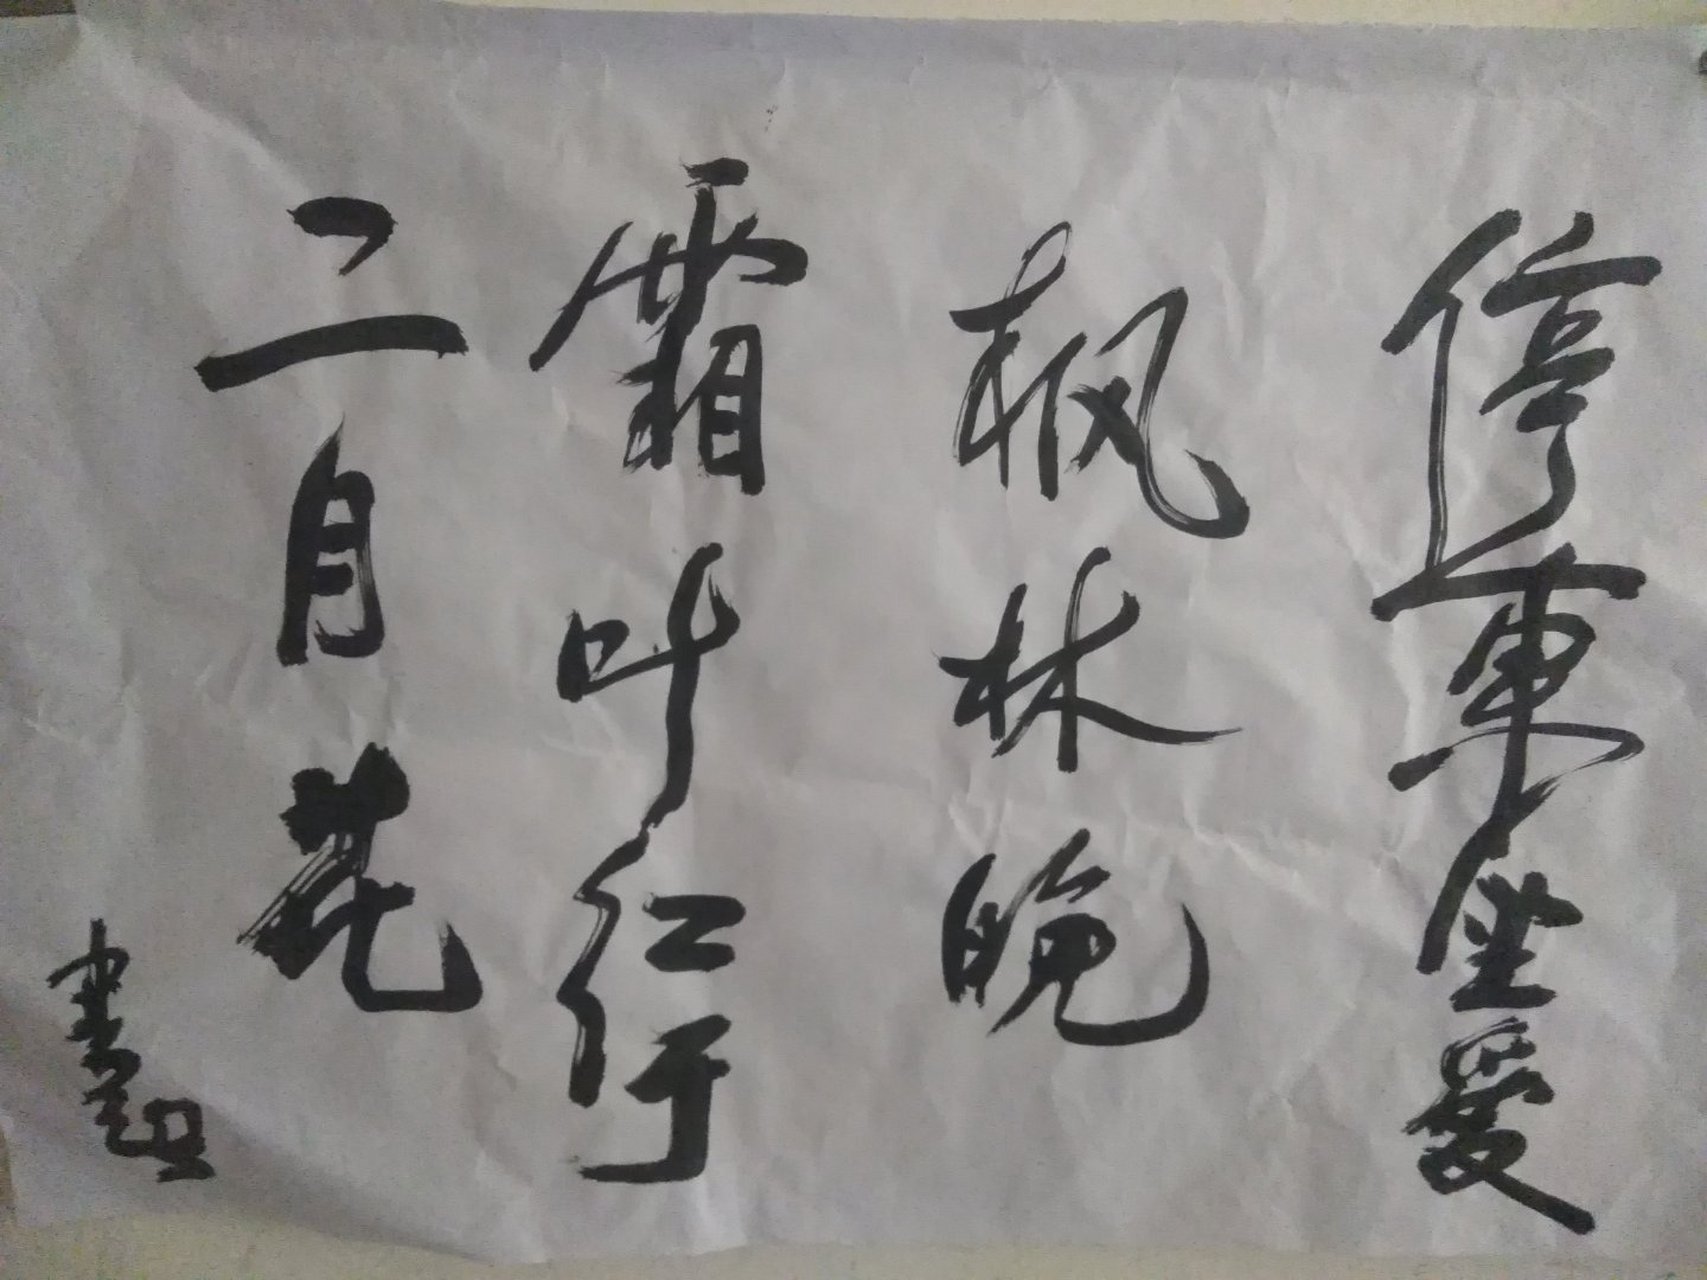 停車坐愛
枫林晚
霜叶红于
二月花